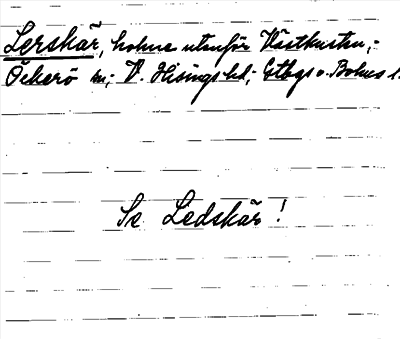 Lerskär, holme utanför Västkusten,-
Öckerö sn; V. Hisings hd; Gtbgs o. Bohus l.
Se Ledskär!